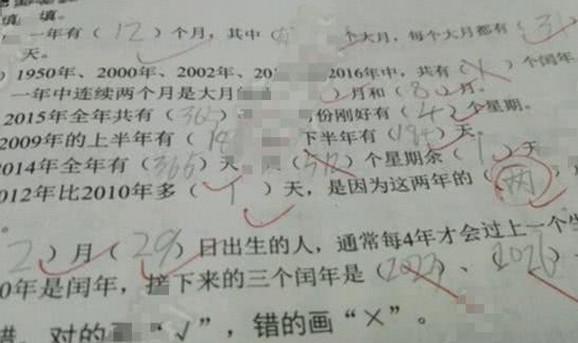 填 填。
一年有(12)个月,其中( 个大月,每个大月都有(31
天。
1950年、2000年、2002年、20 2016年中,共有( )个闰年
一年中连续两个月是大月 )月和(8)月。
2015年全年共有(365) 份刚好有(4)个星期。
2009年的上半年有(18 下半年有(184)天。
2014年全年有(365)天 (52)个星期余(1)天
012年比2010年多(1)天,是因为这两年的(两)
2)月(29)日出生的人,通常每4年才会过上一个生
0年是闰年,接下来的三个闰年是( )、(
对的画“√”,错的画“×”。